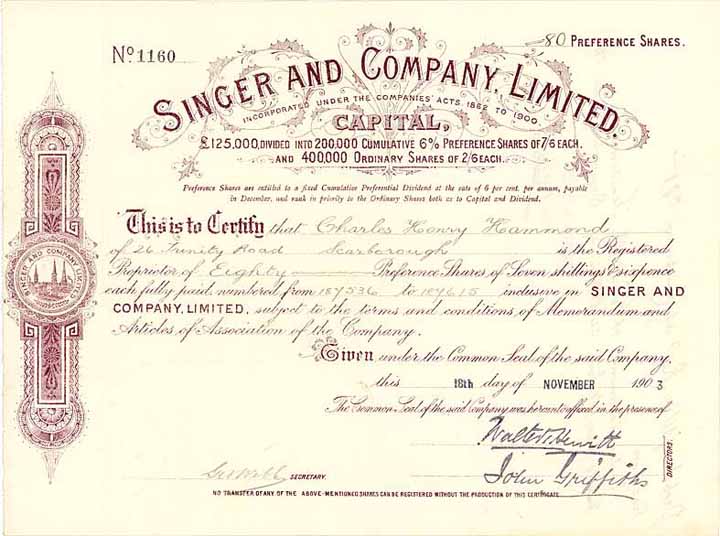 80 PREFERENCE SHARES.
No 1160
SINGER AND COMPANY, LIMITED.
INCORPORATED UNDER THE COMPANIES' ACTS 1862 TO 1900.
CAPITAL,
£125,000, DIVIDED INTO 200,000 CUMULATIVE 6% PREFERENCE SHARES OF 7/6 EACH.
AND 400,000 ORDINARY SHARES OF 2/6 EACH.
Preference Shares are entitled to a fixed Cumulative Preferential Dividend at the rate of 6 per cent. per annum, payable
in December, and rank in priority to the Ordinary Shares both as to Capital and Dividend.
This is to Certify that Charles Henry Hammond
of 26 Trinity Road Scarborough is the Registered
Proprietor of Eighty Preference Shares of Seven shillings & sixpence
each fully paid, numbered from 187536 to 187615 inclusive in SINGER AND
COMPANY, LIMITED, subject to the terms and conditions of Memorandum and
Articles of Association of the Company.
Given under the Common Seal of the said Company,
this 18th day of NOVEMBER 1903
The Common Seal of the said Company was hereunto affixed in the presence of
Walter Hewitt
John Griffiths
DIRECTORS.
SECRETARY.
NO TRANSFER OF ANY OF THE ABOVE-MENTIONED SHARES CAN BE REGISTERED WITHOUT THE PRODUCTION OF THIS CERTIFICATE.
SINGER AND COMPANY LIMITED